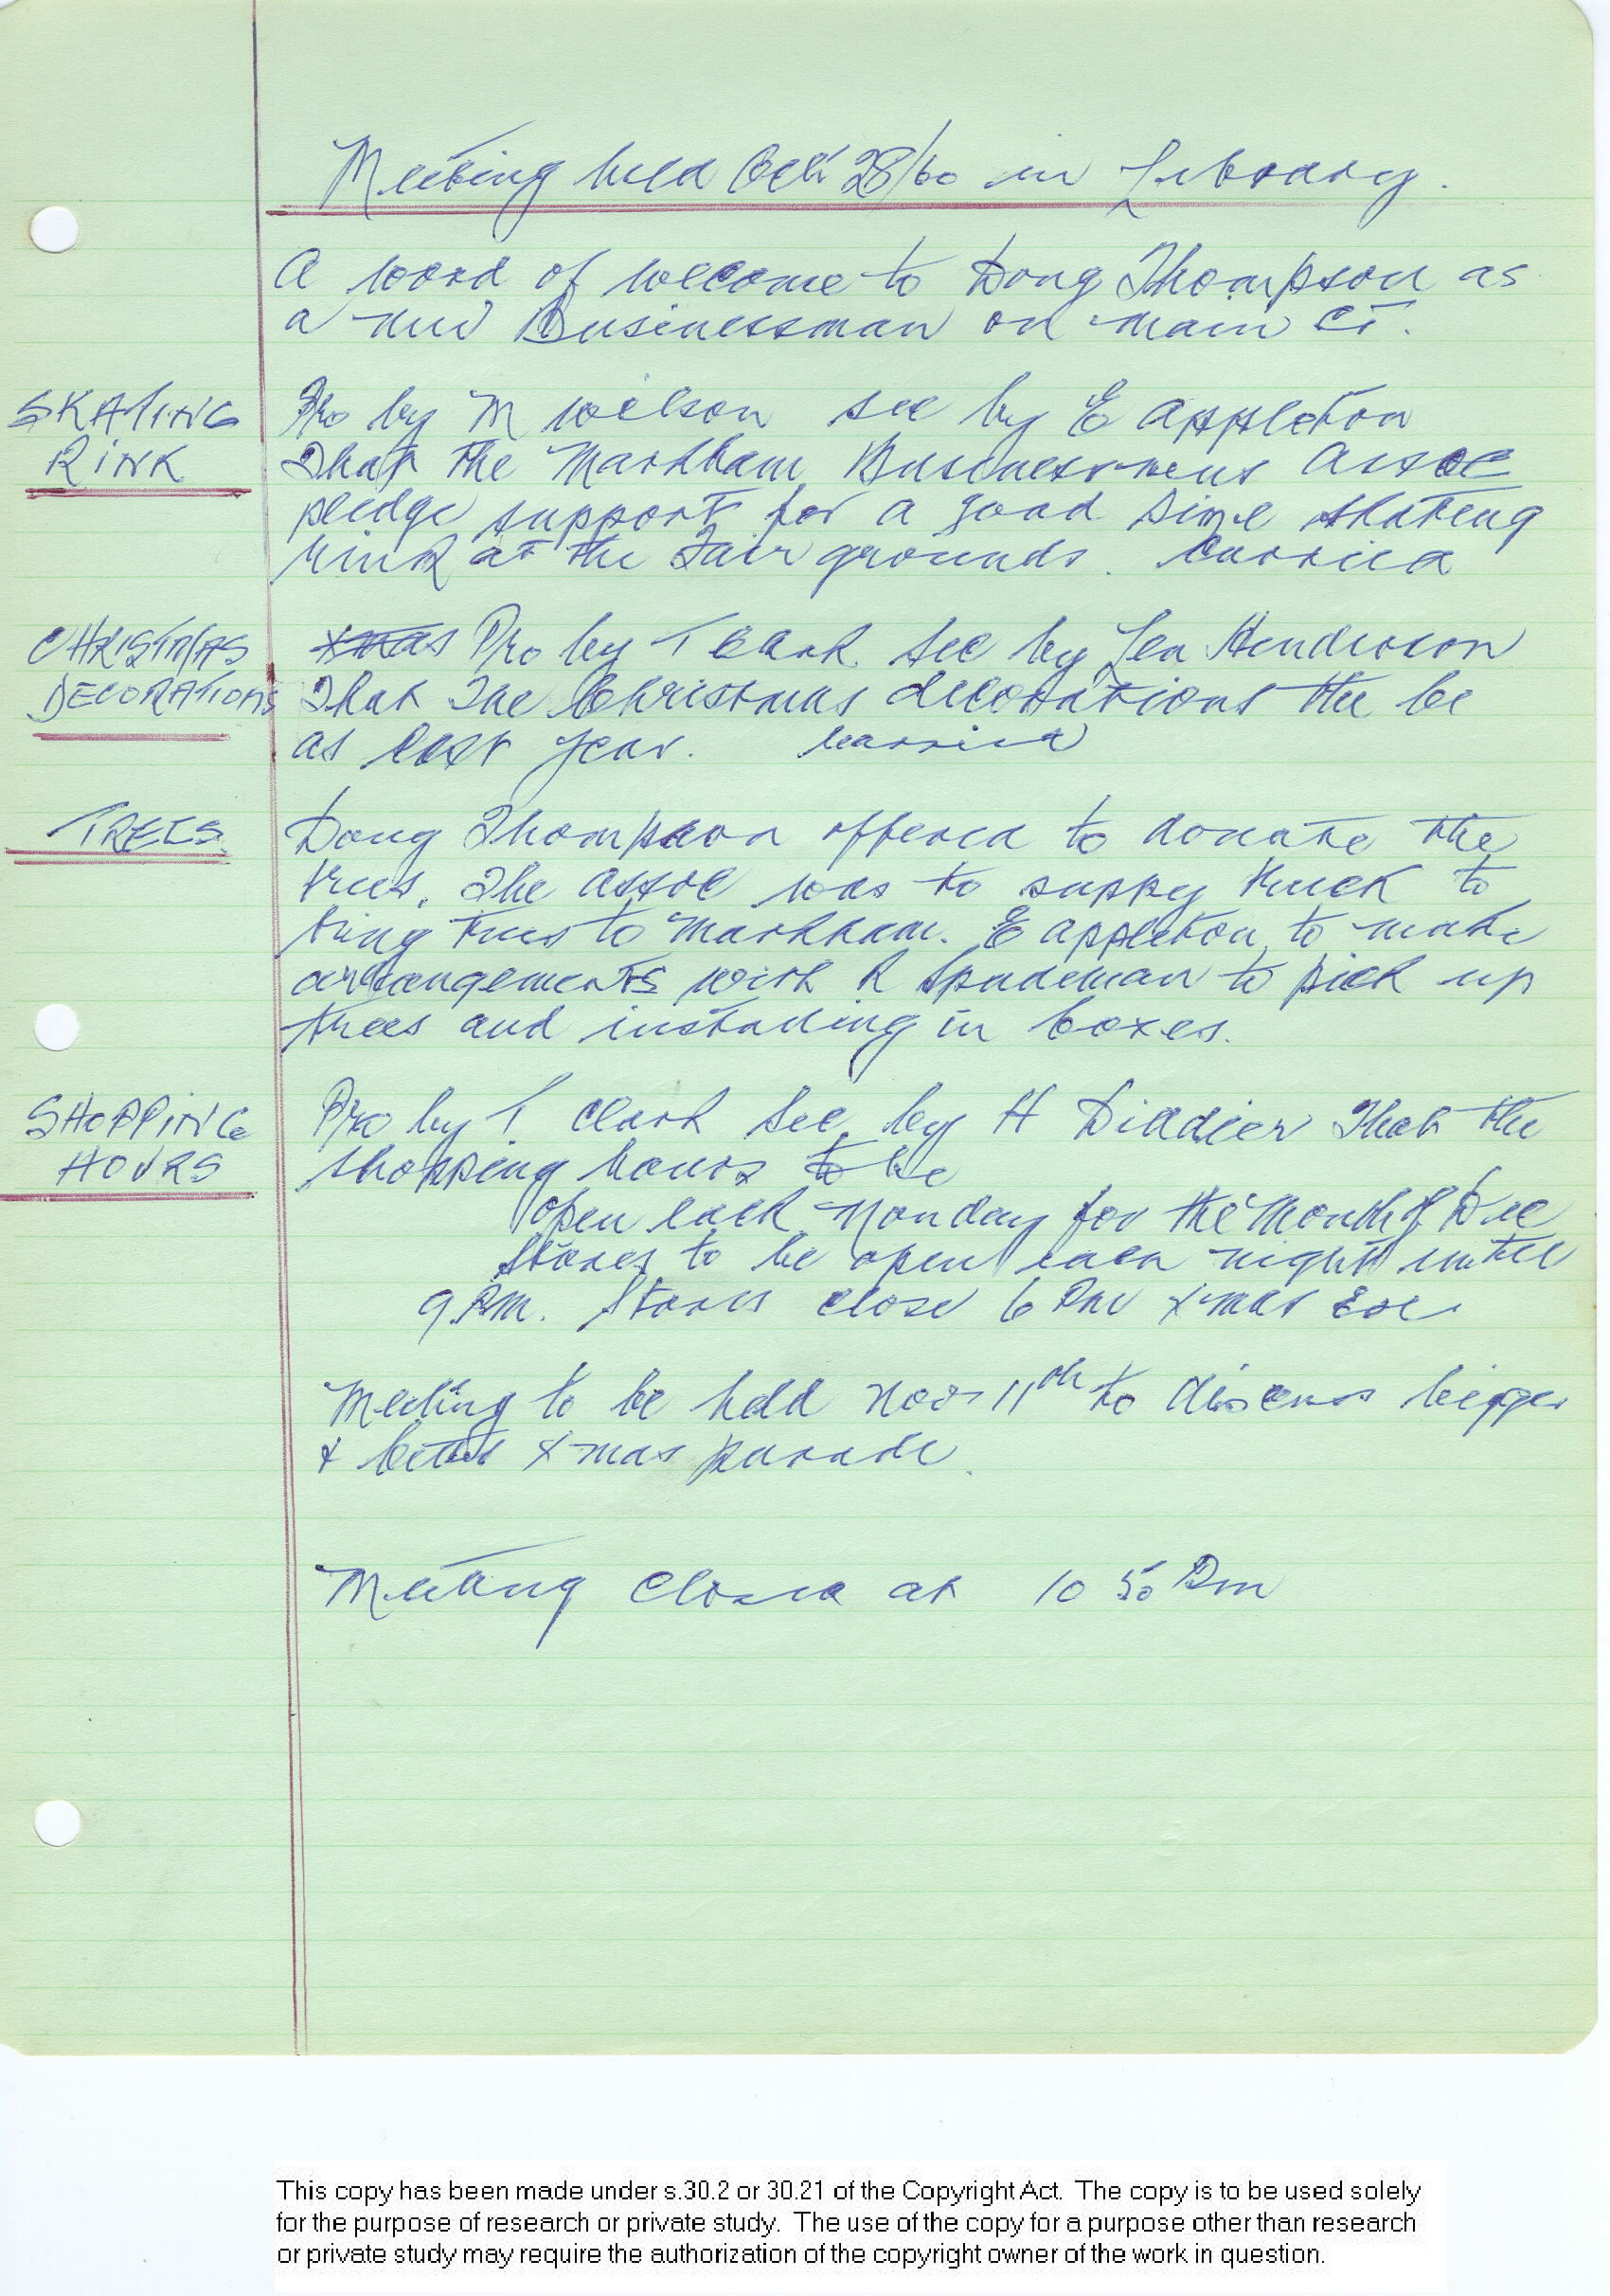 Meeting held Oct 28/60 in Library.
A word of welcome to Doug Thompson as
a new Businessman on Main St.
SKATING
RINK
Pro by M Wilson sec by E Appleton
That the Markham Businessmens Assoc
pledge support for a good size skating
rink at the Fair grounds. Carried
CHRISTMAS
DECORATIONS
Xmas Pro by T Clark Sec by Len Henderson
That The Christmas decorations the be
as last year. Carried
TREES
Doug Thompson offered to donate the
trees. The Assoc was to suppy truck to
bring trees to Markham. E Appleton to make
arrangements with R Spudeman to pick up
trees and installing in boxes.
SHOPPING
HOURS
Pro by T. Clark Sec by H Diddier That the
shopping hours to be
open each Monday for the Month of Dec
Stores to be open each night until
9 P.M. Stores close 6 PM Xmas Eve.
Meeting to be held Nov 11th to discuss bigger
+ better Xmas parade.
Meeting Closed at 10 50 Pm
This copy has been made under s.30.2 or 30.21 of the Copyright Act. The copy is to be used solely
for the purpose of research or private study. The use of the copy for a purpose other than research
or private study may require the authorization of the copyright owner of the work in question.